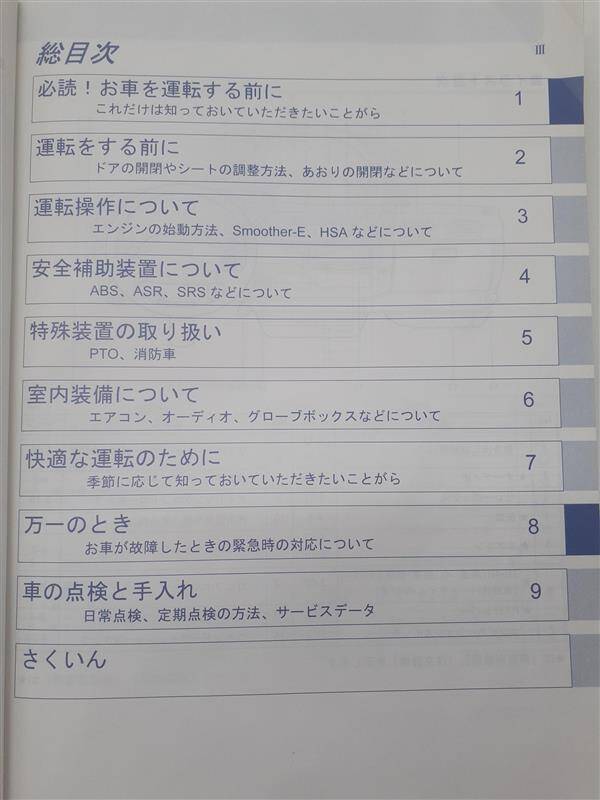 総目次
III
必読！お車を運転する前に
1
これだけは知っておいていただきたいことがら
運転をする前に
2
ドアの開閉やシートの調整方法、あおりの開閉などについて
運転操作について
3
エンジンの始動方法、Smoother-E、HSA などについて
安全補助装置について
4
ABS、ASR、SRS などについて
特殊装置の取り扱い
5
PTO、消防車
室内装備について
6
エアコン、オーディオ、グローブボックスなどについて
快適な運転のために
7
季節に応じて知っておいていただきたいことがら
万一のとき
8
お車が故障したときの緊急時の対応について
車の点検と手入れ
9
日常点検、定期点検の方法、サービスデータ
さくいん